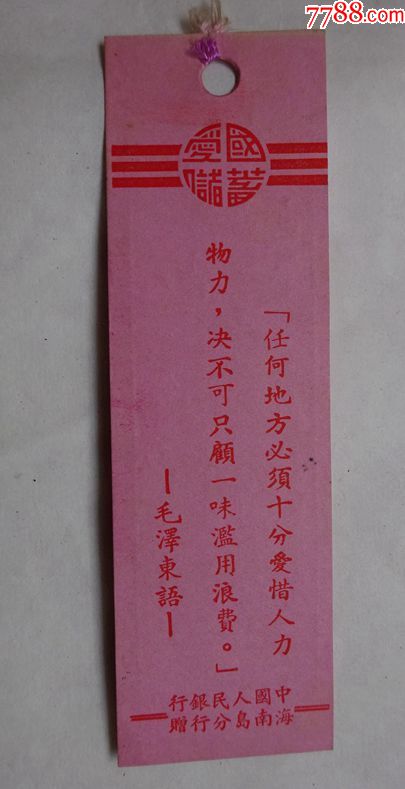 7788.com
愛國
儲蓄
「任何地方必須十分愛惜人力
物力，决不可只顧一味濫用浪費。」
—毛澤東語—
中國人民銀行
海南島分行贈